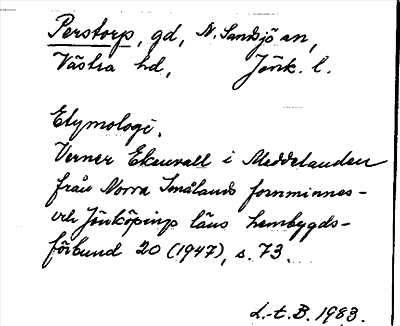 Perstorp, gd, N. Sandsjö sn,
Västra hd, Jönk. l.
Etymologi.
Verner Ekenvall i Meddelanden
från Norra Smålands fornminnes-
och Jönköpings läns hembygds-
förbund 20 (1947), s. 73.
L.-t. B. 1983.